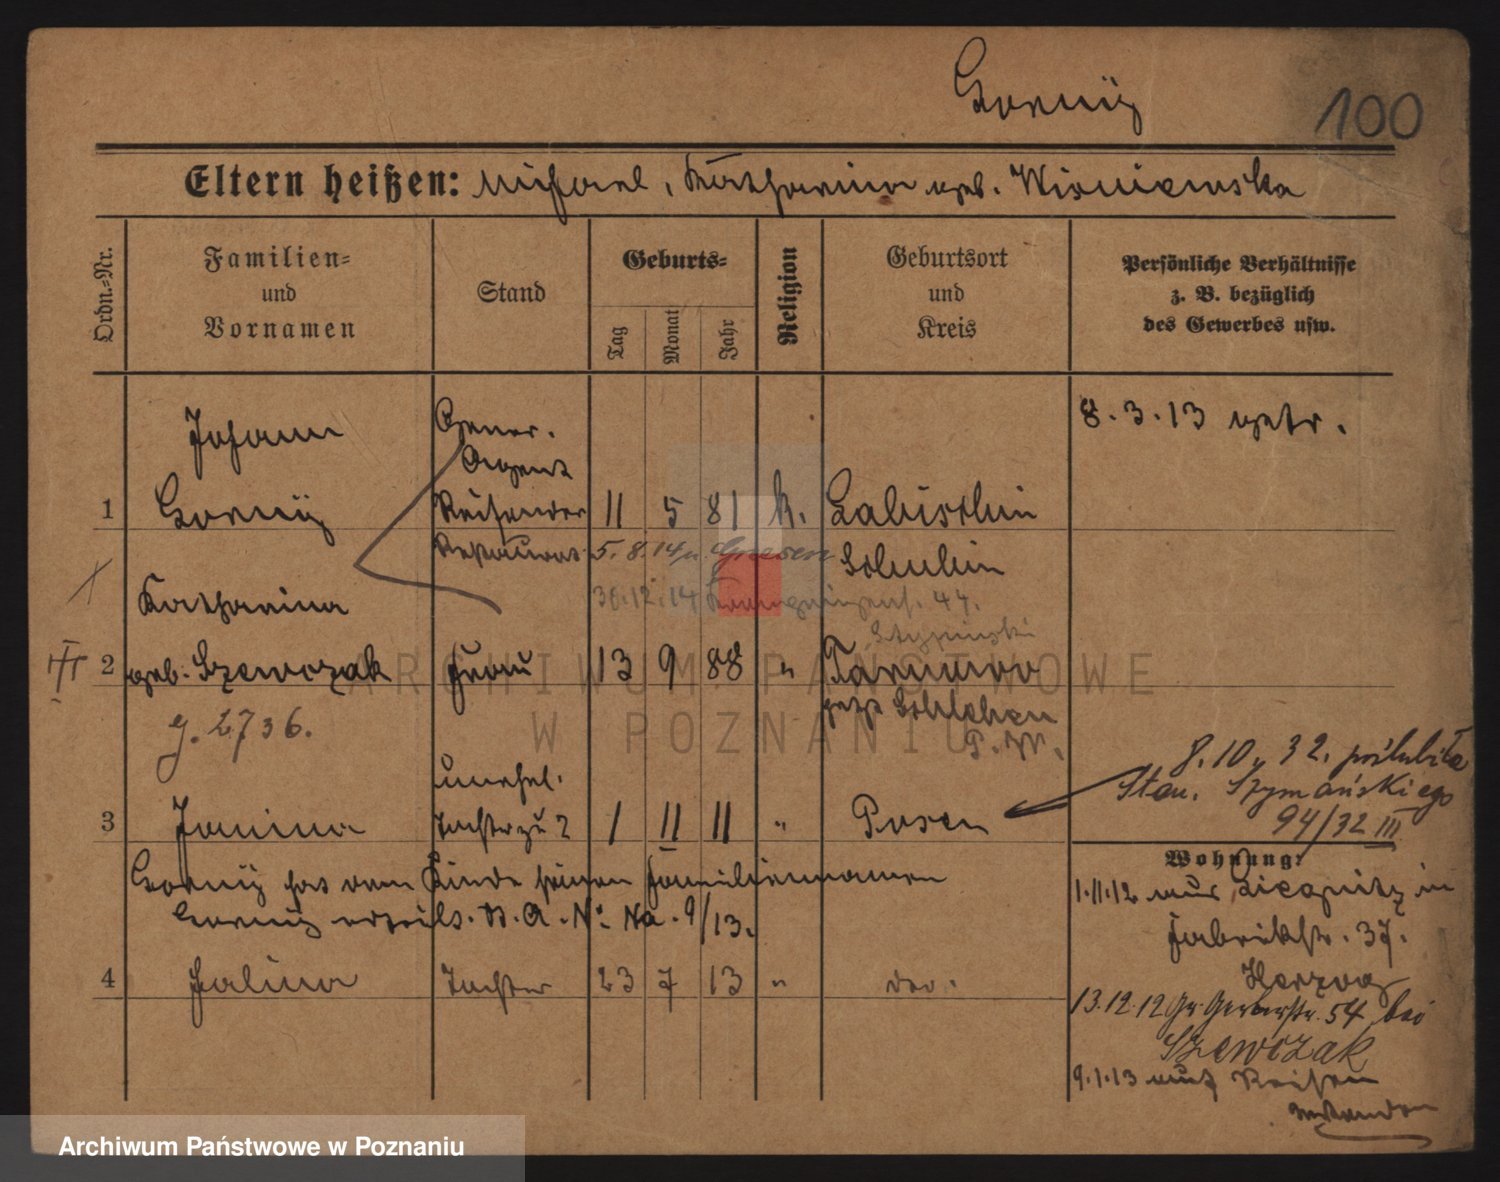 Gorniÿ
100
Eltern heißen: Michael, Katharina geb. Wisniewska
Ordn.-Nr.
Familien-
und
Vornamen
Stand
Geburts-
Tag
Monat
Jahr
Religion
Geburtsort
und
Kreis
Persönliche Verhältnisse
z. B. bezüglich
des Gewerbes usw.
Johann
Gener.
Agent
8.3.13 getr.
1 Gorniÿ Reisender 11 5 81 k. Labischin
Restaurat. 5.8.14 n. Gnesen Schubin
30.12.14 44.
Katharina
Stypinski
2 geb. Szewczak Frau 13 9 88 " Tarnowo
III
g. 2736.
jetzt
P. W.
8.10.32. poślubiła
Stan. Szymańskiego
94/32 III
unehel.
3 Janina Tochter zu 2 1 11 11 " Posen
Gorniÿ hat dem Kinde seinen Familiennamen
Gorniÿ erteilt. St. A. No. 9/13.
4 Halina Tochter 23 7 13 " do.
Wohnung:
1.11.12 aus Liegnitz in
Fabrikstr. 37.
Herzog
13.12.12 Gr. Gerberstr. 54 bei
Szewczak
9.1.13 auf Reisen
ARCHIWUM PAŃSTWOWE
W POZNANIU
Archiwum Państwowe w Poznaniu